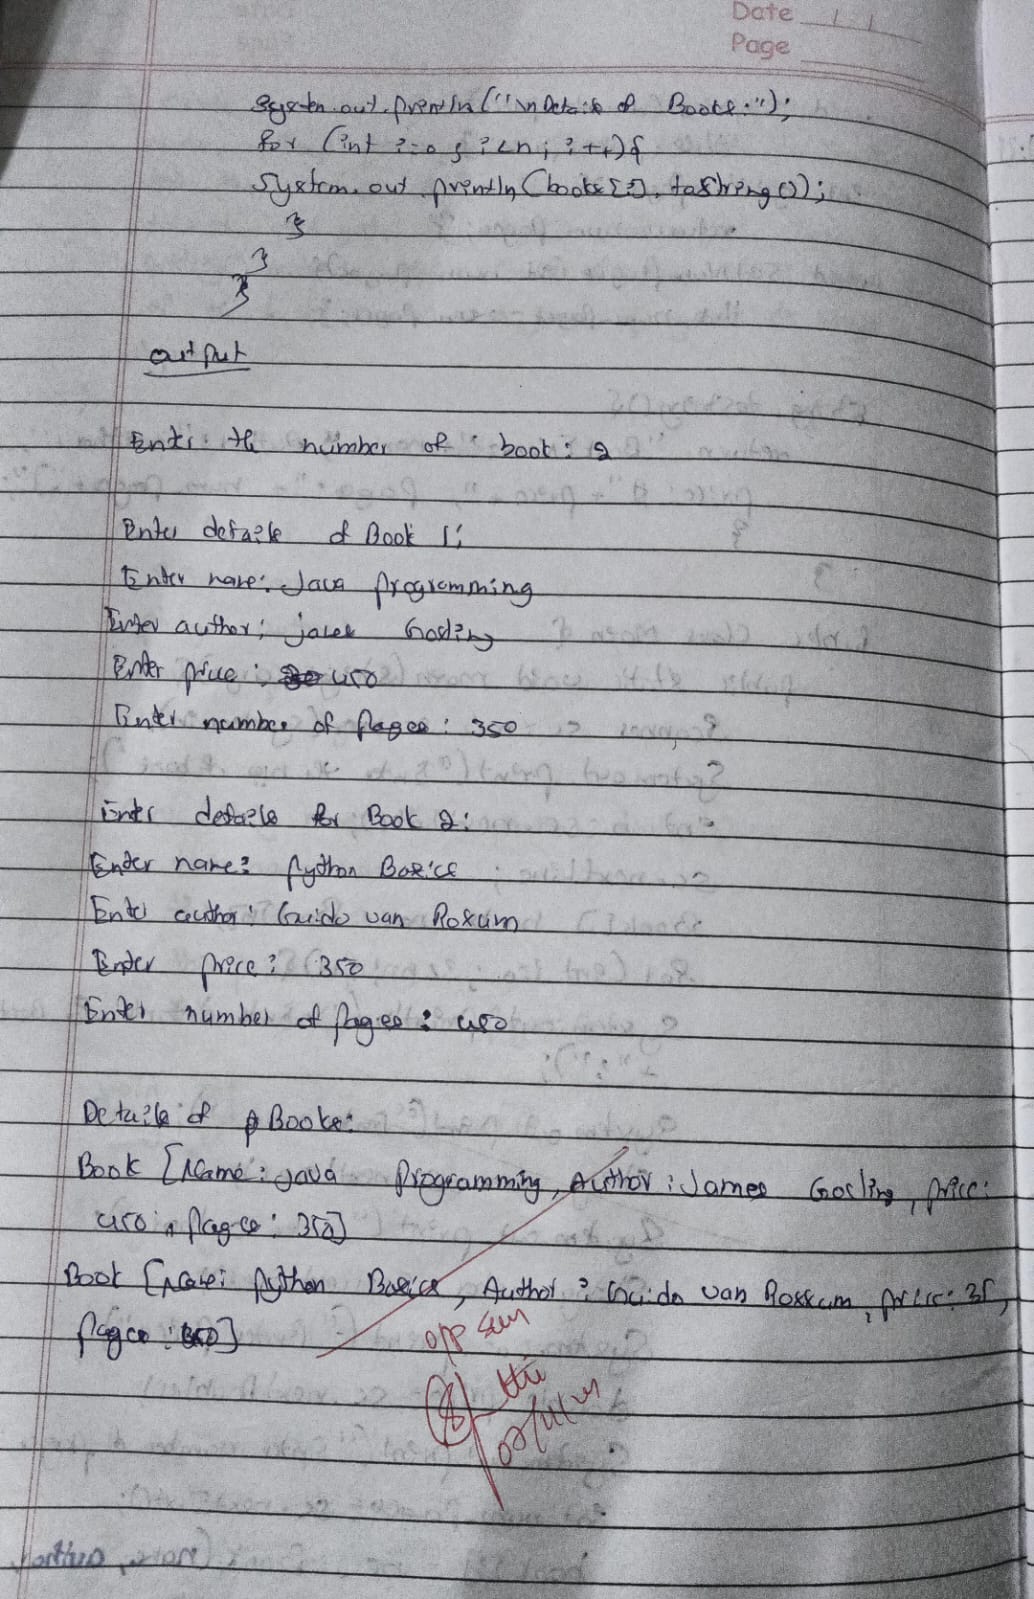 Date / /
Page
System.out.println("\nDetails of Books:");
for (int i=0; i<n; i++){
System.out.println(books[i].toString());
}
}
}
output
Enter the number of book: 2
Enter details of Book 1:
Enter name: Java programming
Enter author: james Gosling
Enter price: 450
Enter number of pages: 350
Enter details for Book 2:
Enter name: python Basics
Enter author: Guido van Rossum
Enter price: 350
Enter number of pages: 450
Details of Books:
Book [Name: java programming, Author: James Gosling, price:
450, pages: 350]
Book [Name: python Basics, Author: Guido van Rossum, price: 35,
pages: ]